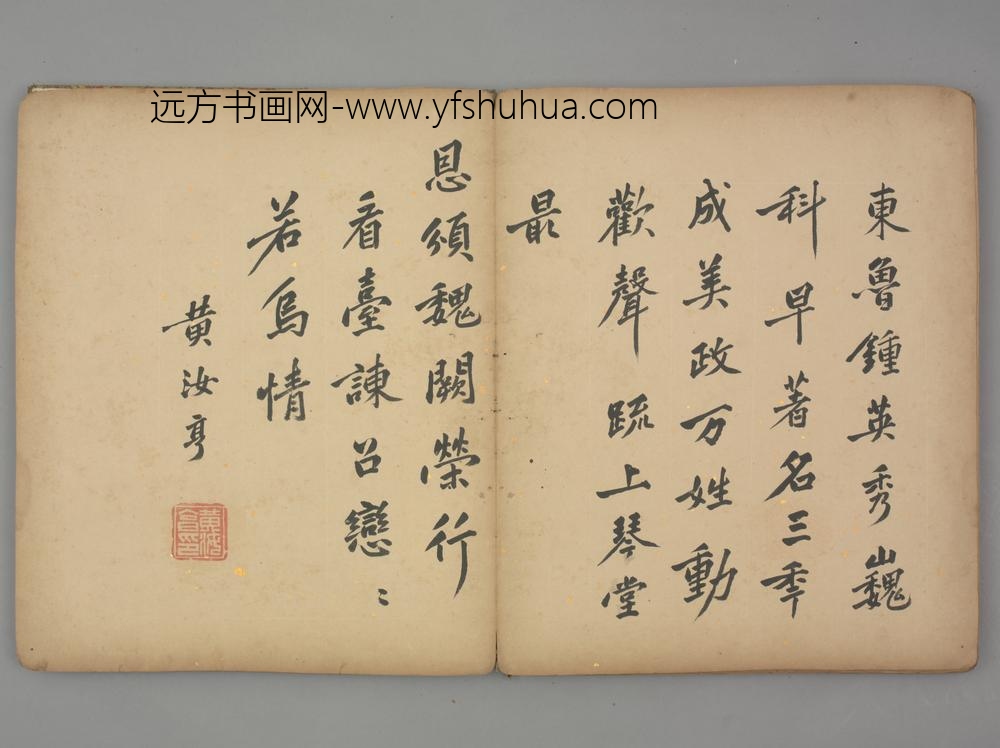 远方书画网-www.yfshuhua.com
東魯鍾英秀巍
科早著名三年
成美政万姓動
歡聲䟽上琴堂
最
恩頒魏闕榮行
看臺諫召戀〻
若烏情
黄汝亨
黄汝亨印